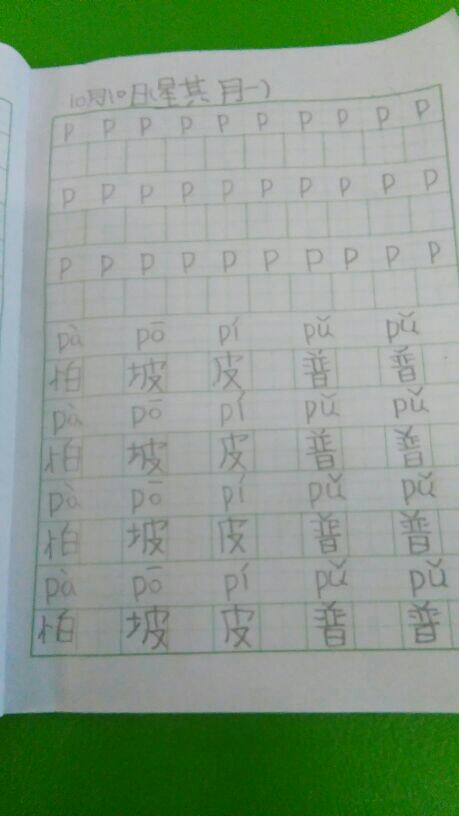 10月10日(星其月一)
p p p p p p p p p p
p p p p p p p p p p
p p p p p p p p p p
pà pō pí pǔ pǔ
怕 坡 皮 普 普
pà pō pí pǔ pǔ
怕 坡 皮 普 普
pà pō pí pǔ pǔ
怕 坡 皮 普 普
pà pō pí pǔ pǔ
怕 坡 皮 普 普